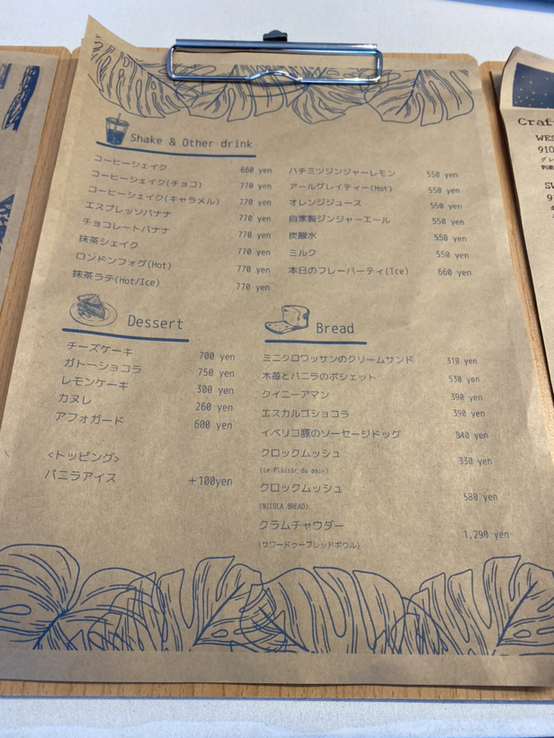 Shake & Other drink
コーヒーシェイク 660 yen
コーヒーシェイク(チョコ) 770 yen
コーヒーシェイク(キャラメル) 770 yen
エスプレッソバナナ 770 yen
チョコレートバナナ 770 yen
抹茶シェイク 770 yen
ロンドンフォグ(Hot) 770 yen
抹茶ラテ(Hot/Ice) 770 yen
ハチミツジンジャーレモン 550 yen
アールグレイティー(Hot) 550 yen
オレンジジュース 550 yen
自家製ジンジャーエール 550 yen
炭酸水 550 yen
ミルク 550 yen
本日のフレーバーティ(Ice) 660 yen
Dessert
チーズケーキ 700 yen
ガトーショコラ 750 yen
レモンケーキ 300 yen
カヌレ 260 yen
アフォガード 600 yen
<トッピング>
バニラアイス +100yen
Bread
ミニクロワッサンのクリームサンド 310 yen
木苺とバニラのポシェット 530 yen
クイニーアマン 390 yen
エスカルゴショコラ 390 yen
イベリコ豚のソーセージドッグ 840 yen
クロックムッシュ 330 yen
(Le Plaisir du pain)
クロックムッシュ 580 yen
(NICOLA BREAD)
クラムチャウダー 1,290 yen
(サワードゥーブレッドボウル)
Craf
WES
910